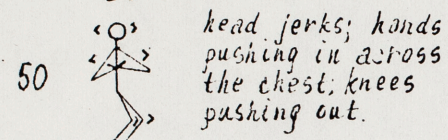 50
head jerks; hands
pushing in across
the chest; knees
pushing out.